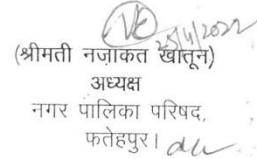 25/4/2022
(श्रीमती नज़ाकत खातून)
अध्यक्ष
नगर पालिका परिषद,
फतेहपुर।